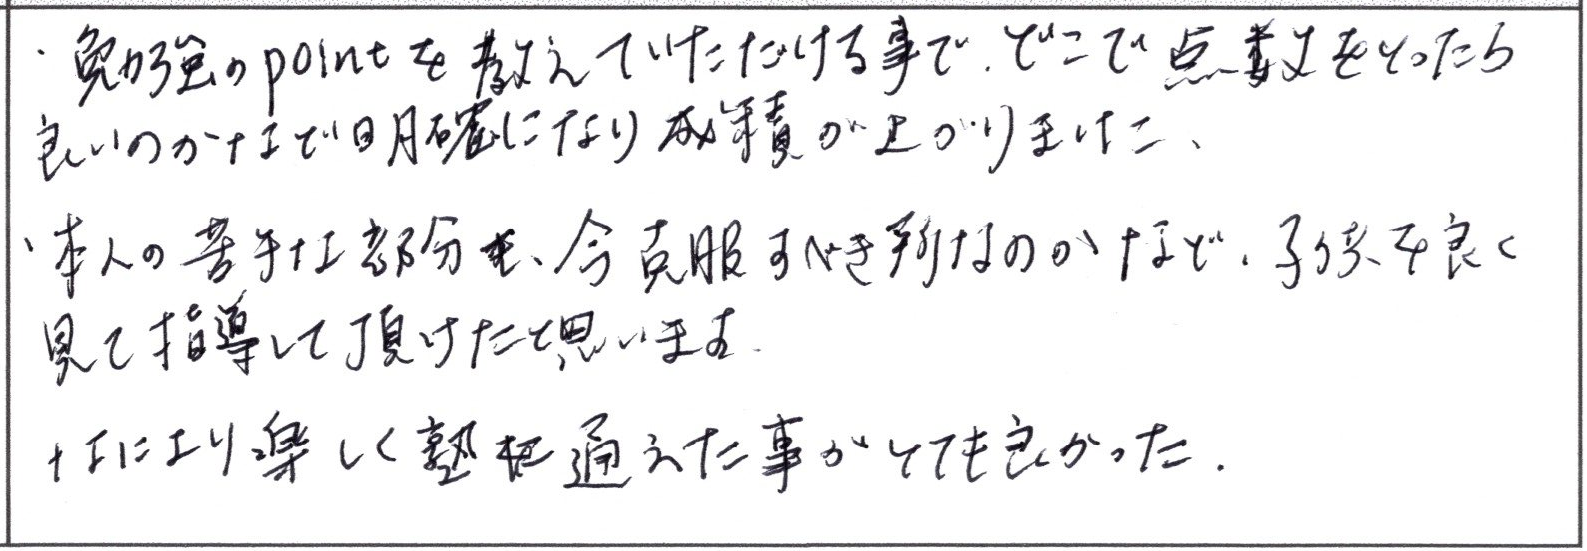 ・勉強のpointを教えていただける事で、どこで点数をとったら
良いのかなど明確になり成績が上がりました、
・本人の苦手な部分を、今克服すべき所なのかなど、子供を良く
見て指導して頂けたと思います.
なにより楽しく塾に通えた事がとても良かった.